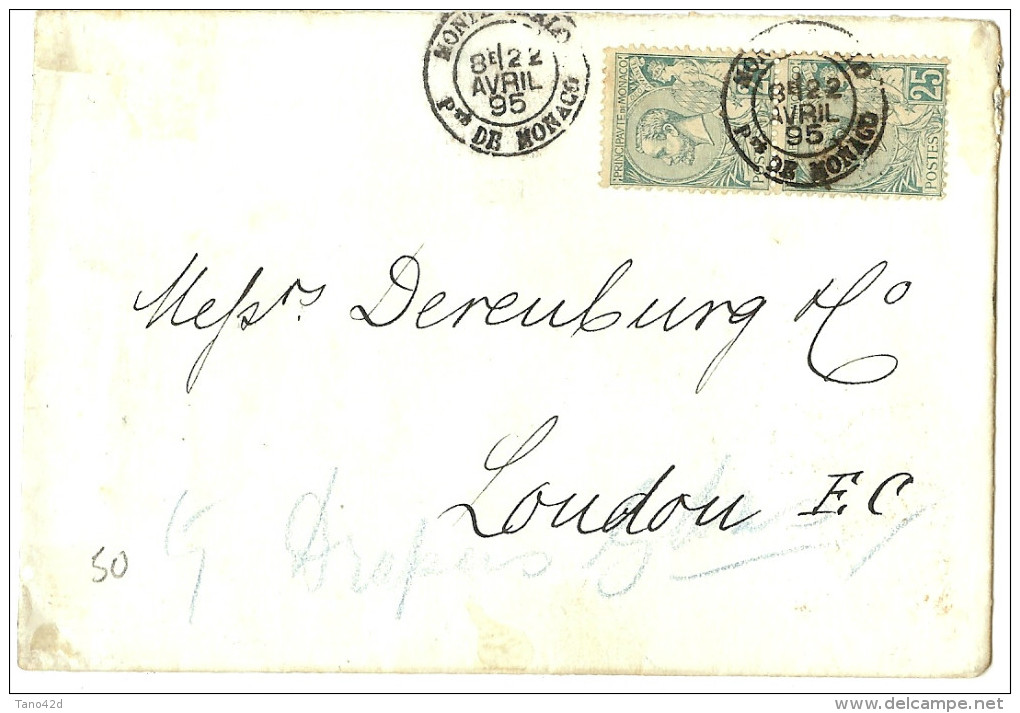 MONTE CARLO
8E/22
AVRIL
95
PTÉ DE MONACO
PRINCIPAUTÉ DE MONACO
POSTES
8E/22
AVRIL
95
PTÉ DE MONACO
25
POSTES
Messrs Derenburg & Co
London E.C
50
Tano42d
www.delcampe.net